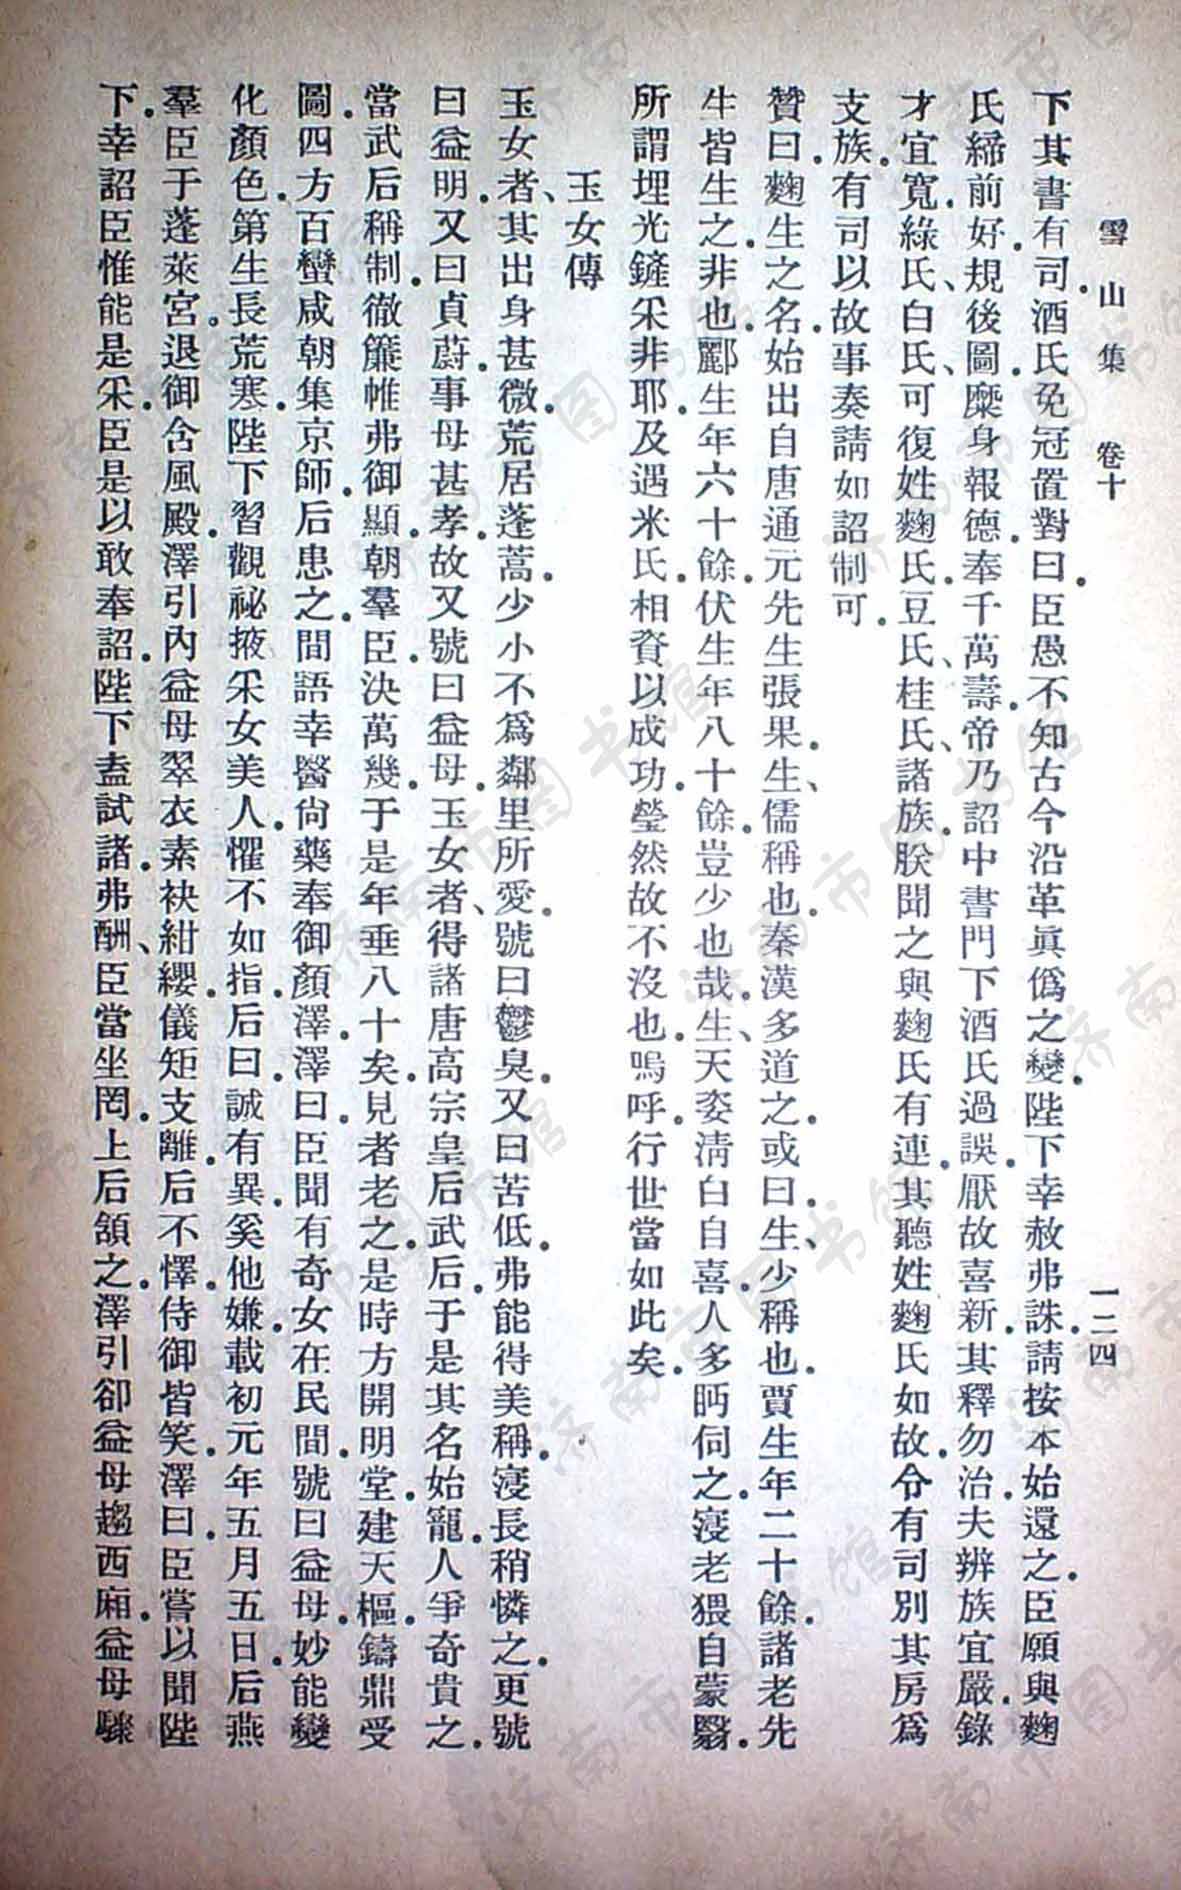 雪山集 卷十 一二四
下其書有司。酒氏免冠置對曰。臣愚不知古今沿革眞僞之變。陛下幸赦弗誅。請按本始還之。臣願與麴
氏締前好。規後圖。糜身報德。奉千萬壽。帝乃詔中書門下。酒氏過誤。厭故喜新。其釋勿治。夫辨族宜嚴。錄
才宜寬。綠氏、白氏、可復姓麴氏。豆氏、桂氏、諸族。朕聞之與麴氏有連。其聽姓麴氏如故。令有司別其房爲
支族。有司以故事奏請如詔制可。
贊曰。麴生之名。始出自唐通元先生張果。生、儒稱也。秦漢多道之。或曰。生、少稱也。賈生年二十餘。諸老先
生皆生之。非也。酈生年六十餘。伏生年八十餘。豈少也哉。生、天姿淸白自喜。人多眄伺之。寖老猥自蒙翳。
所謂埋光鏟采非耶。及遇米氏。相資以成功。瑩然故不沒也。嗚呼。行世當如此矣。
玉女傳
玉女者、其出身甚微。荒居蓬蒿。少小不爲鄰里所愛。號曰鬱臭。又曰苦低。弗能得美稱。寖長稍憐之。更號
曰益明。又曰貞蔚。事母甚孝。故又號曰益母。玉女者、得諸唐高宗皇后武后。于是其名始寵。人爭奇貴之。
當武后稱制。徹簾帷弗御。顯朝羣臣。決萬幾。于是年垂八十矣。見者老之。是時方開明堂。建天樞。鑄鼎受
圖。四方百蠻咸朝集京師。后患之。間語幸醫尙藥奉御顏澤。澤曰。臣聞有奇女在民間。號曰益母。妙能變
化顏色。第生長荒寒。陛下習觀祕掖采女美人。懼不如指。后曰。誠有異。奚他嫌。載初元年五月五日。后燕
羣臣于蓬萊宮。退御含風殿。澤引內益母。翠衣素袂紺纓。儀矩支離。后不懌。侍御皆笑。澤曰。臣嘗以聞陛
下。幸詔臣惟能是采。臣是以敢奉詔。陛下盍試諸。弗酬、臣當坐罔上。后頷之。澤引卻益母趨西廂。益母驟